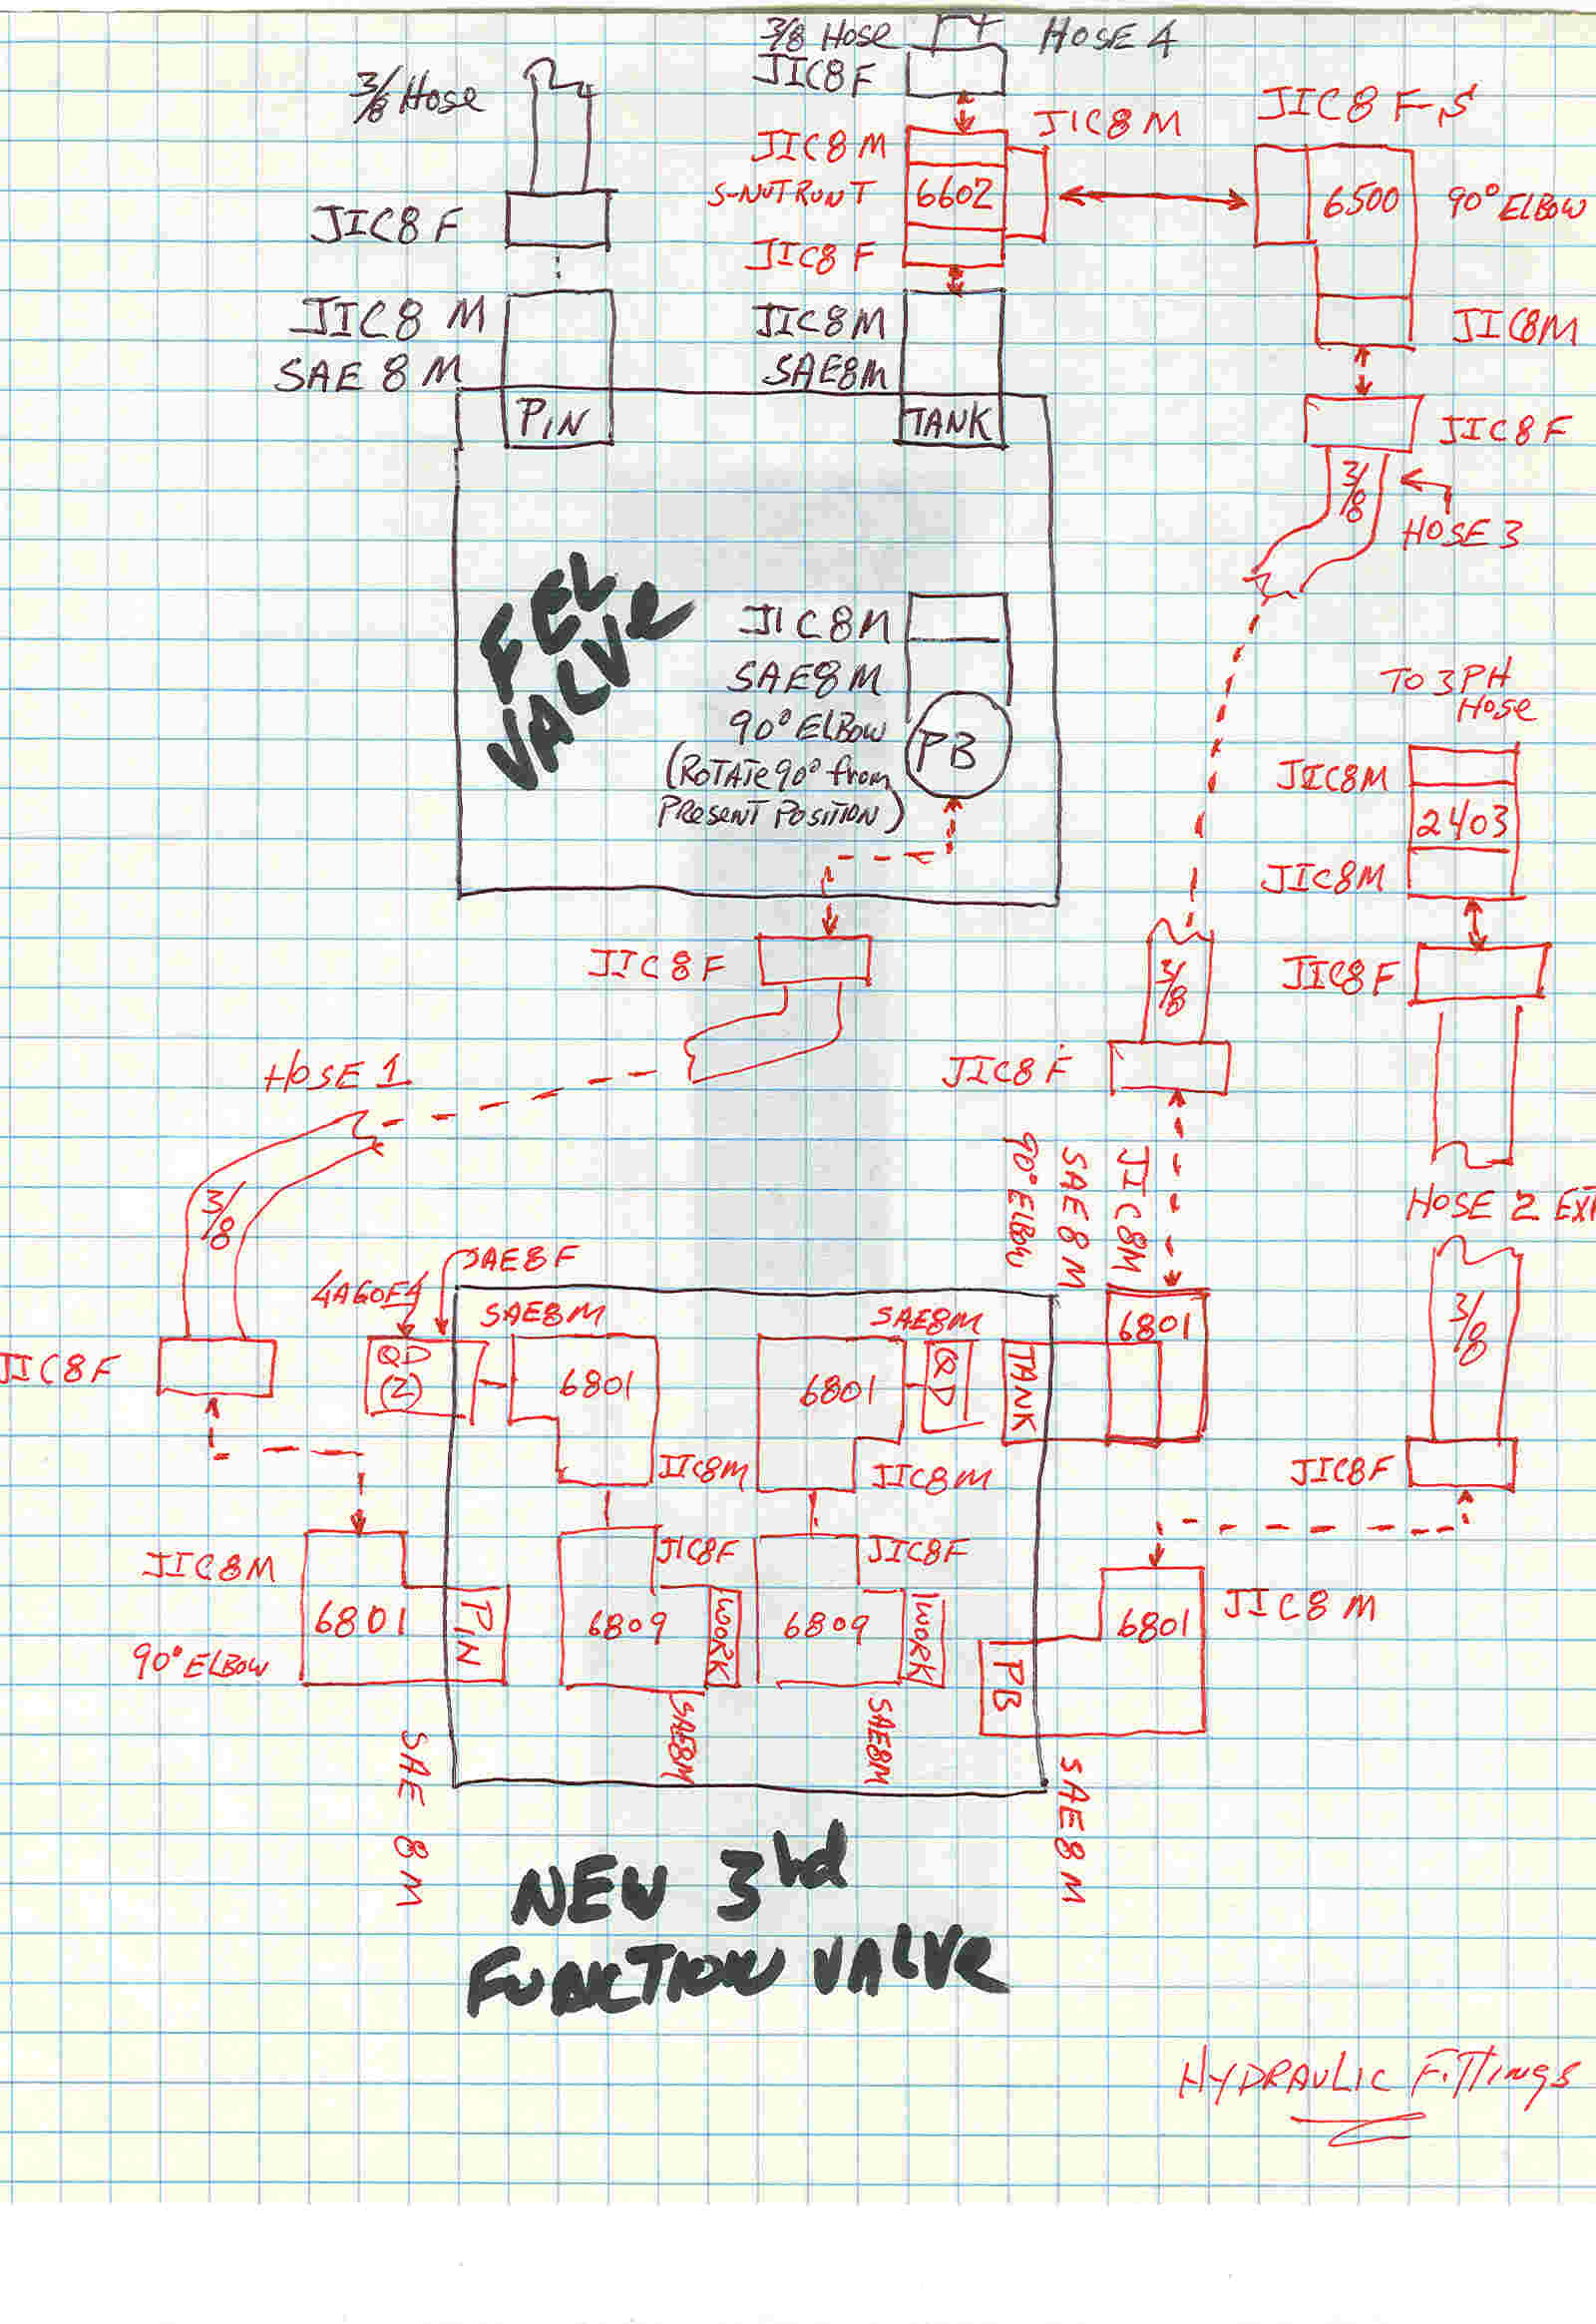 3/8 Hose
HOSE 4
JIC8F
3/8 Hose
JIC8M
JIC8 F S
JIC8M
S-NUT RUN T
6602
6500
90° ELBOW
JIC8 F
JIC8 F
JIC8 M
JIC8M
JIC8M
SAE 8 M
SAE8M
PIN
TANK
JIC8F
3/8
HOSE 3
FEL
VALVe
JIC8M
SAE8M
90° ELBow
(ROTATe 90° from
PResenT POSITION)
PB
TO 3PH
Hose
JIC8M
2403
JIC8M
JIC8F
JIC8F
3/8
JIC8F
HOSE 1
3/8
JIC8M
SAE 8 M
90° ELBow
HOSE 2 EXT
3/8
JIC8F
SAE8F
4AGOF4
SAE8M
SAE8M
6801
JIC8F
QD
(2)
6801
6801
QD
TANK
JIC8M
JIC8M
JIC8F
JIC8M
6801
90° ELBOW
PIN
JIC8F
6809
WORK
JIC8F
6809
WORK
PB
6801
JIC8M
SAE 8 M
SAE8M
SAE8M
SAE8M
NEW 3rd
FUNCTION VALVe
HYDRAULIC FITTINGS